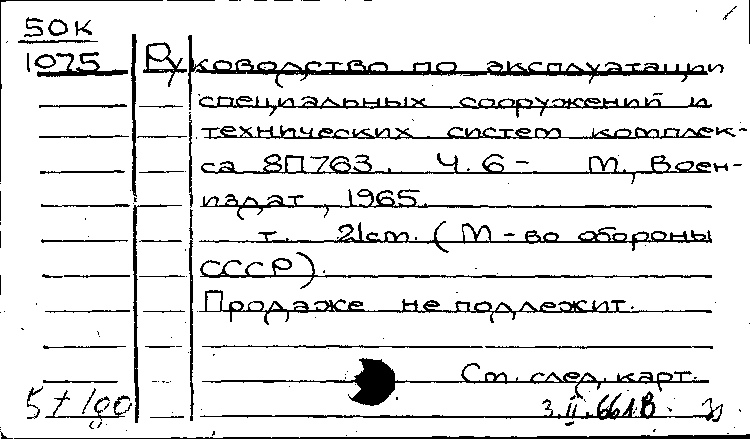 50К
1075 Руководство по эксплуатации
специальных сооружений и
технических систем комплек-
са 8П763. Ч. 6- М., Воен-
издат, 1965.
т. 21см. (М-во обороны
СССР).
Продаже не подлежит.
См. след. карт.
5+180